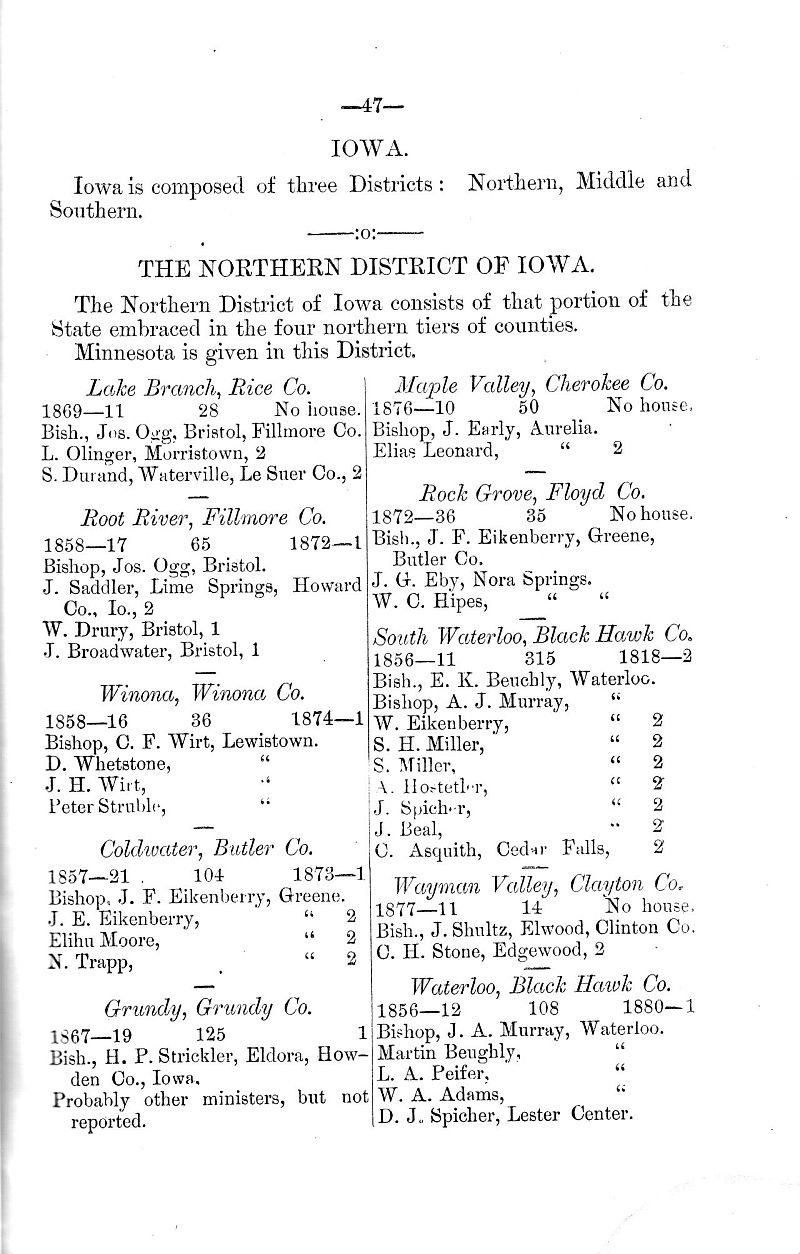 —47—
IOWA.
Iowa is composed of three Districts: Northern, Middle and
Southern.
———:o:———
THE NORTHERN DISTRICT OF IOWA.
The Northern District of Iowa consists of that portion of the
State embraced in the four northern tiers of counties.
Minnesota is given in this District.
Lake Branch, Rice Co.
1869—11 28 No house.
Bish., Jos. Ogg, Bristol, Fillmore Co.
L. Olinger, Morristown, 2
S. Durand, Waterville, Le Suer Co., 2
Root River, Fillmore Co.
1858—17 65 1872—1
Bishop, Jos. Ogg, Bristol.
J. Saddler, Lime Springs, Howard
Co., Io., 2
W. Drury, Bristol, 1
J. Broadwater, Bristol, 1
Winona, Winona Co.
1858—16 36 1874—1
Bishop, C. F. Wirt, Lewistown.
D. Whetstone, “
J. H. Wirt, “
Peter Struble, “
Coldwater, Butler Co.
1857—21 104 1873—1
Bishop, J. F. Eikenberry, Greene.
J. E. Eikenberry, “ 2
Elihu Moore, “ 2
N. Trapp, “ 2
Grundy, Grundy Co.
1867—19 125 1
Bish., H. P. Strickler, Eldora, How-
den Co., Iowa.
Probably other ministers, but not
reported.
Maple Valley, Cherokee Co.
1876—10 50 No house.
Bishop, J. Early, Aurelia.
Elias Leonard, “ 2
Rock Grove, Floyd Co.
1872—36 35 No house.
Bish., J. F. Eikenberry, Greene,
Butler Co.
J. G. Eby, Nora Springs.
W. C. Hipes, “ “
South Waterloo, Black Hawk Co.
1856—11 315 1818—2
Bish., E. K. Beuchly, Waterloo.
Bishop, A. J. Murray, “
W. Eikenberry, “ 2
S. H. Miller, “ 2
S. Miller, “ 2
A. Hostetler, “ 2
J. Spicher, “ 2
J. Beal, “ 2
C. Asquith, Cedar Falls, 2
Wayman Valley, Clayton Co.
1877—11 14 No house.
Bish., J. Shultz, Elwood, Clinton Co.
C. H. Stone, Edgewood, 2
Waterloo, Black Hawk Co.
1856—12 108 1880—1
Bishop, J. A. Murray, Waterloo.
Martin Beughly, “
L. A. Peifer, “
W. A. Adams, “
D. J. Spicher, Lester Center.